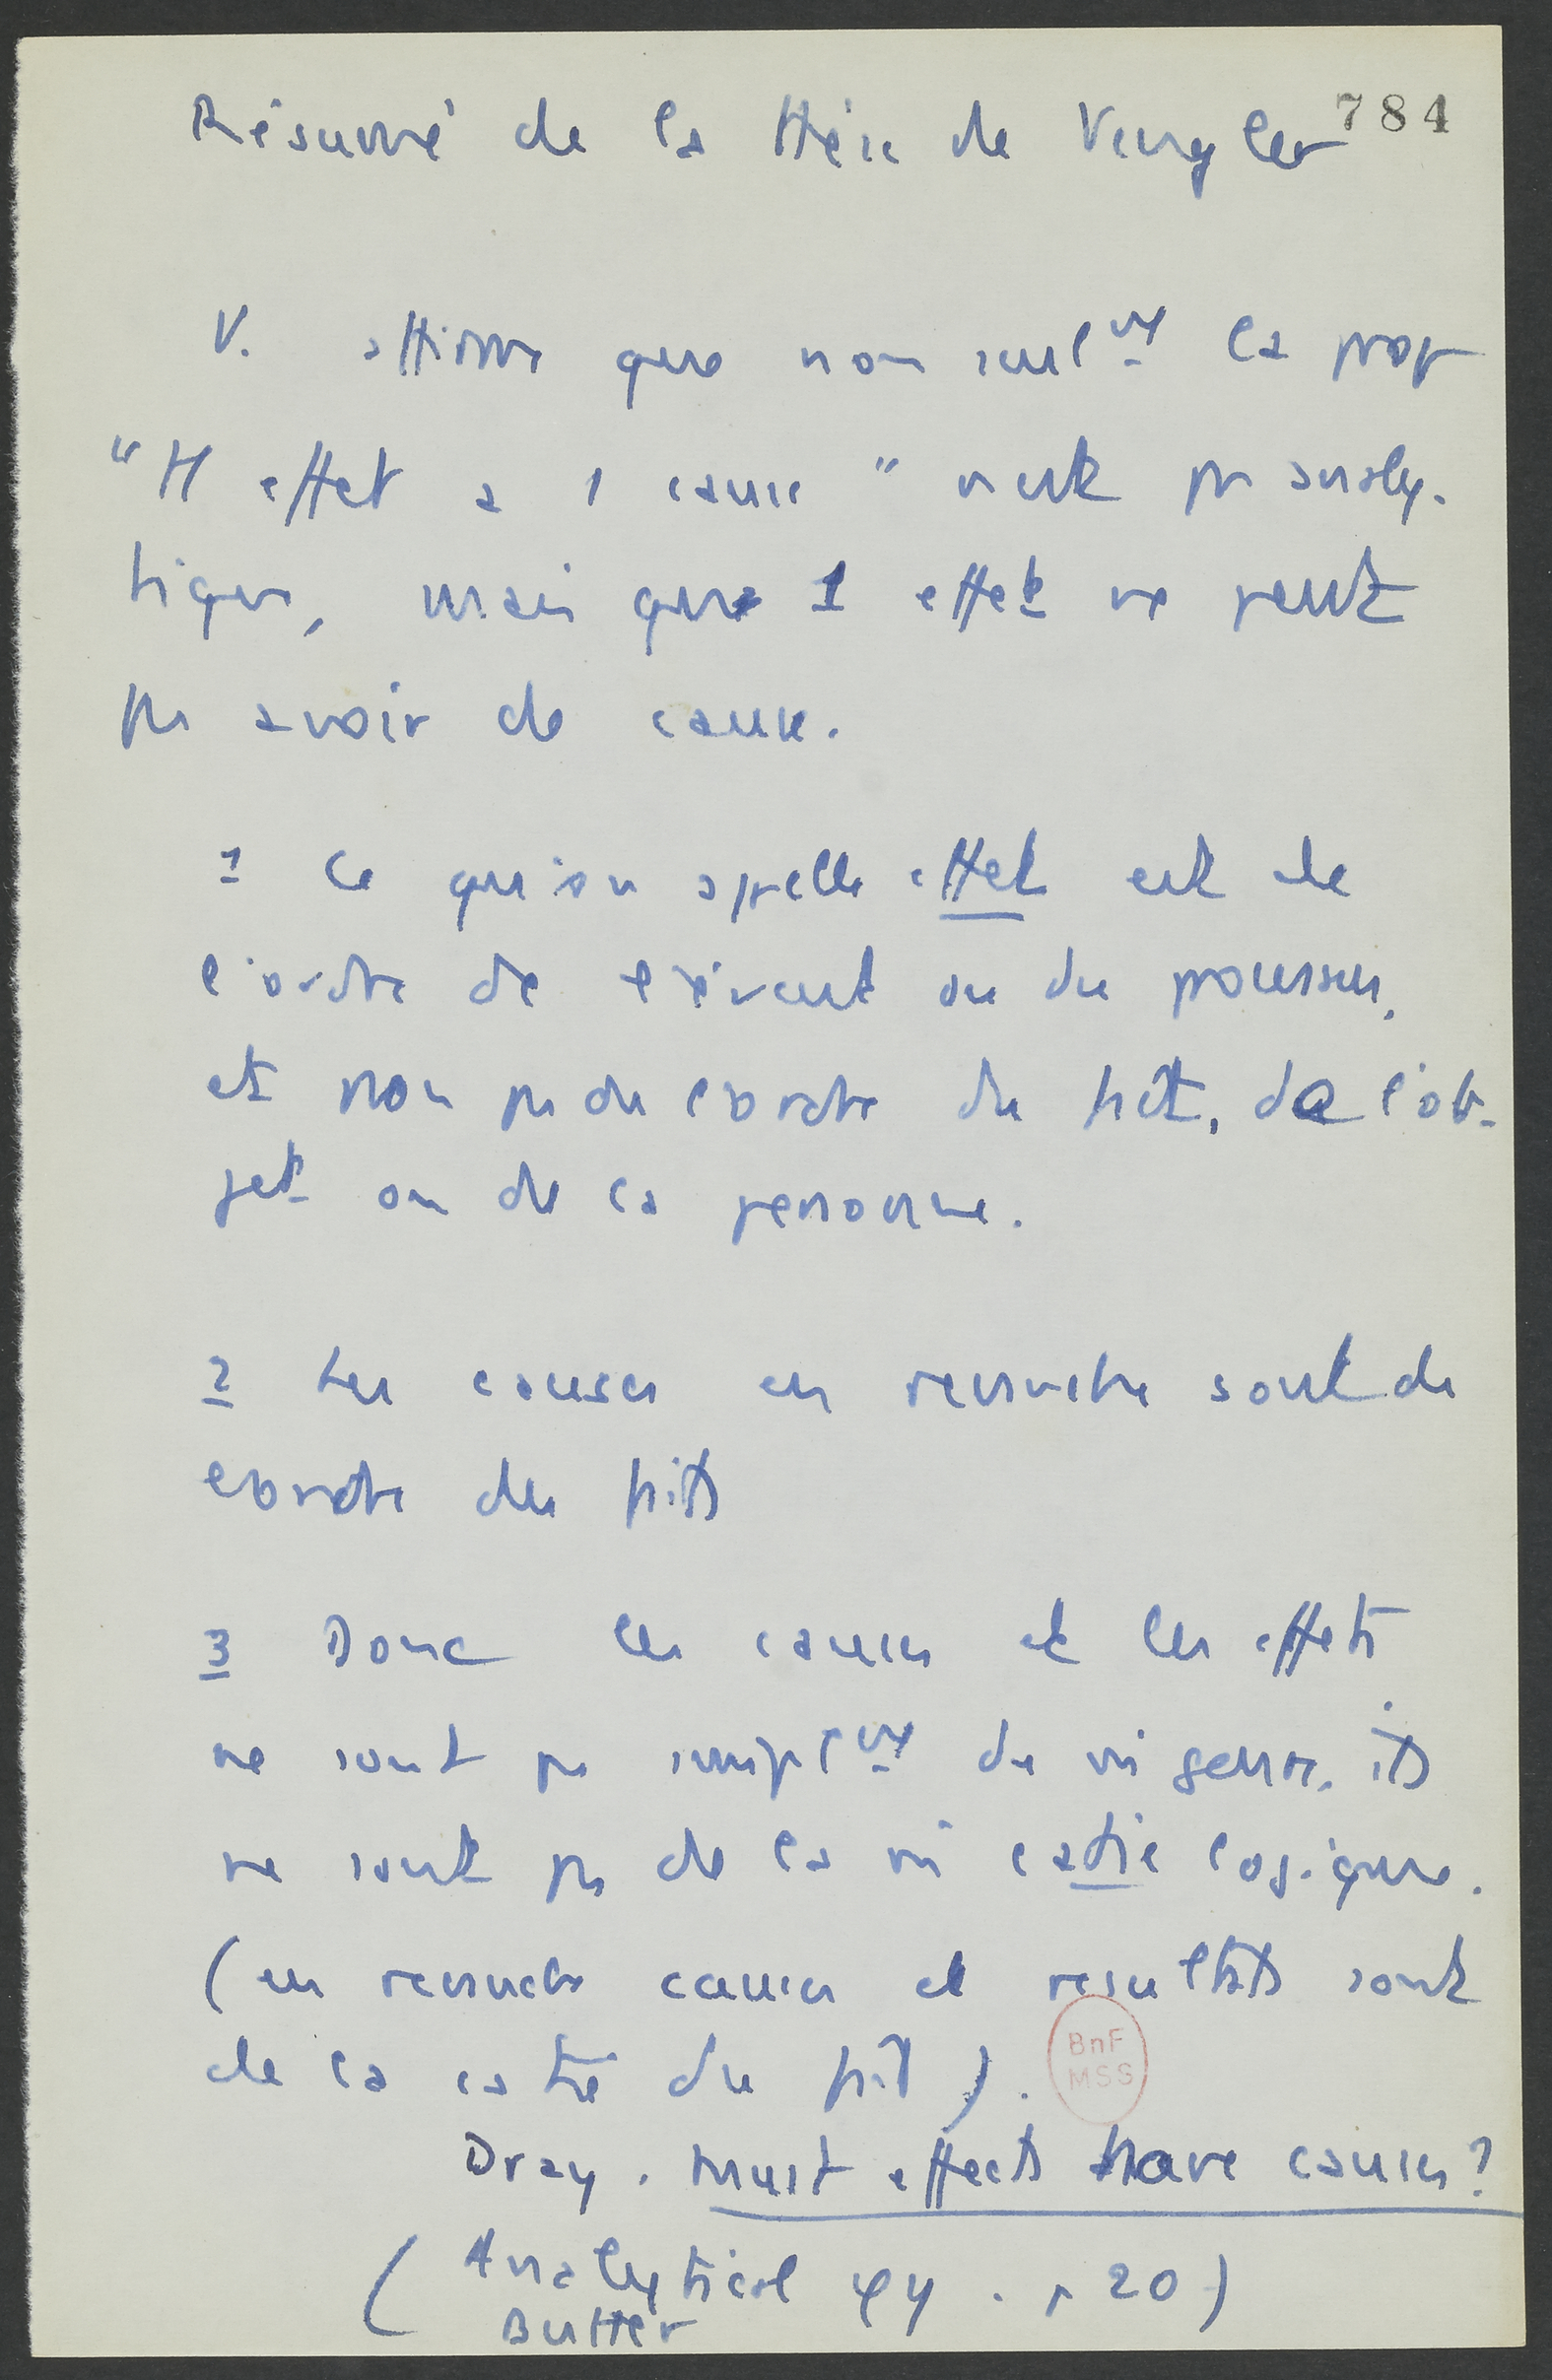 784
Résumé de la thèse de Vengler
V. affirme que non seulmt la prop
"tt effet a 1 cause" n'est pas analy-
tique, mais que 1 effet ne peut
pas avoir de cause.
1 Ce qu'on appelle effet est de
l'ordre de l'évent ou du processus,
et non pas de l'ordre du fait, de l'ob-
jet ou de la personne.
2 Les causes en revanche sont de
l'ordre des faits
3 Donc les causes et les effets
ne sont pas simplmt du mê genre. ils
ne sont pas de la mê catie logique.
(en revanche causes et résultats sont
de la catie du fait).
BnF
MSS
Dray. Must effects have causes?
(Analytical φy. p 20)
Butler